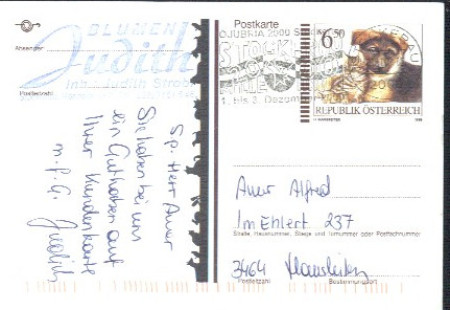 Postkarte
BLUMEN
Judith
Inh. Judith
Absender:
Postleitzahl
Sg. Herr Auer
Sie haben bei uns
ein Guthaben auf
Ihrer Kundenkarte
m. f. G. Judith
ÖJUBRIA 2000
STOCK
1. bis 3. Dezember
6.50
REPUBLIK ÖSTERREICH
Auer Alfred
Im Ehlert 237
Straße, Hausnummer, Stiege und Türnummer oder Postfachnummer
3464 Hausleiten
Postleitzahl Bestimmungsort